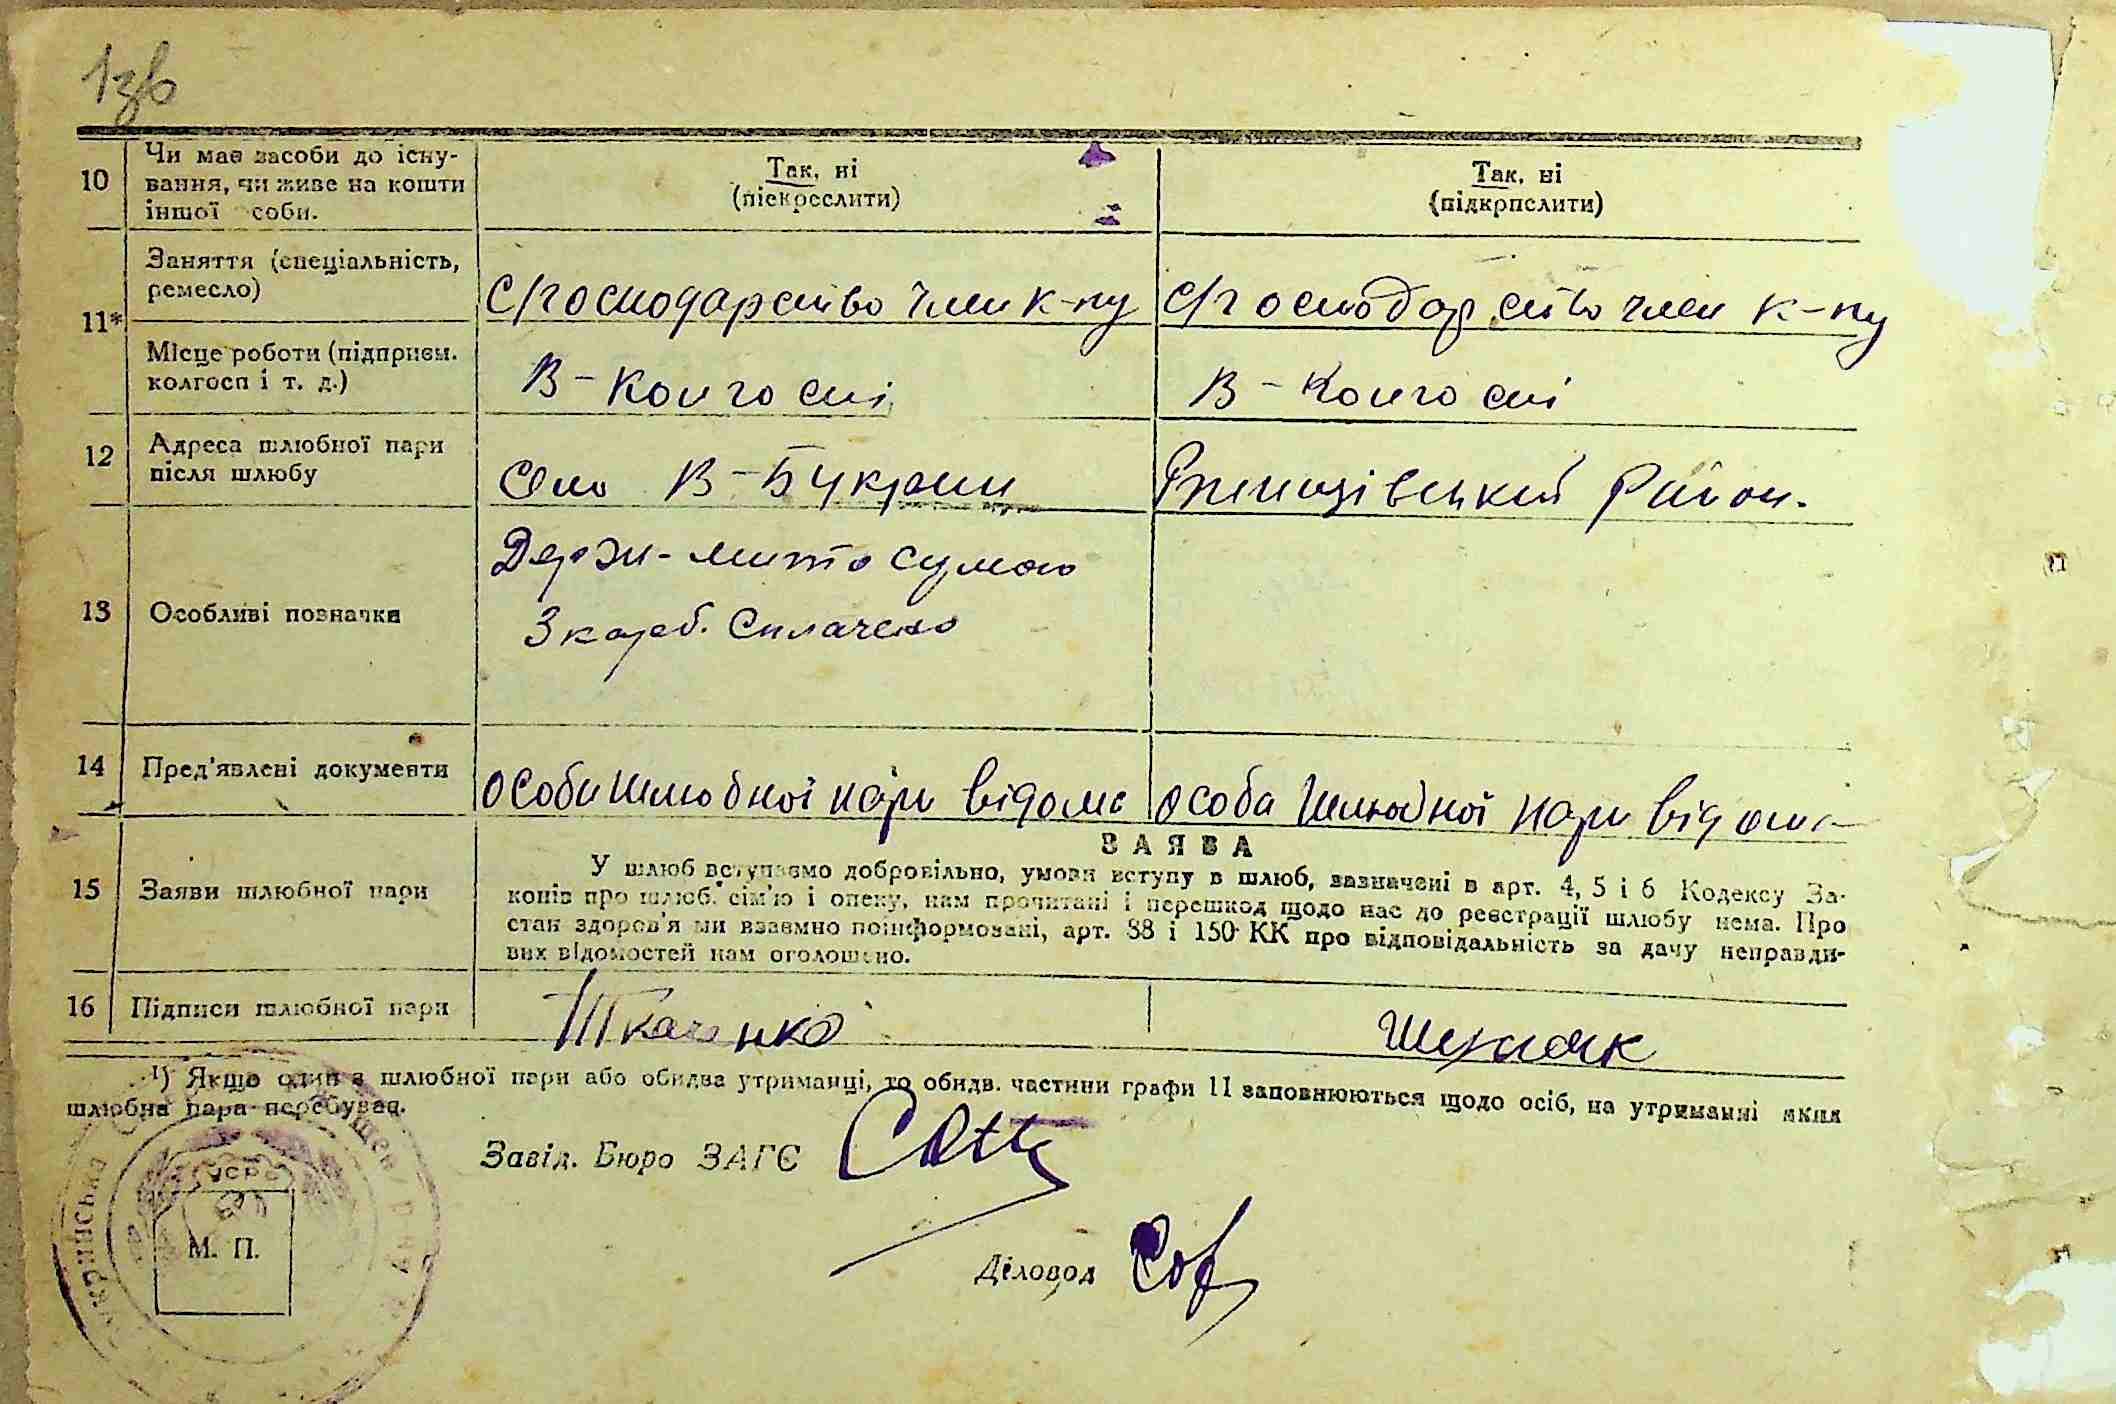 1зв
10 Чи має засоби до існу-
вання, чи живе на кошти
іншої соби.
Так, ні
(піекреслити)
Так, ні
(підкрпслити)
11* Заняття (спеціальність,
ремесло)
С/господарство член к-пу
С/господарство член к-пу
Місце роботи (підприєм.
колгосп і т. д.)
В-Колгоспі
В-Колгоспі
12 Адреса шлюбної пари
після шлюбу
Село В-Букрин
Ржищівський Район.
13 Особливі позначки
Держ-мито сумою
3 карб. Сплачено
14 Пред'явлені документи
особи шлюбної пари відомі
особа шлюбної пари відомі
15 Заяви шлюбної пари
ЗАЯВА
У шлюб вступаємо добровільно, умови вступу в шлюб, зазначені в арт. 4, 5 і 6 Кодексу За-
конів про шлюб, сім'ю і опеку, нам прочитані і перешкод щодо нас до реєстрації шлюбу нема. Про
стан здоров'я ми взаємно поінформовані, арт. 88 і 150 КК про відповідальність за дачу неправди-
вих відомостей нам оголошено.
16 Підписи шлюбної пари
Ткаченко
¹) Якщо один з шлюбної пари або обидва утриманці, то обидв. частини графи 11 заповнюються щодо осіб, на утриманні яких
шлюбна пара перебуває.
Завід. Бюро ЗАГС
УСРР
М. П.
Діловод